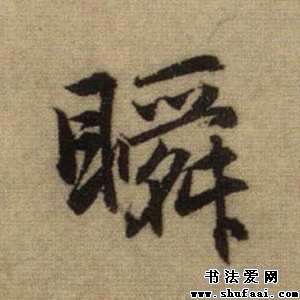 瞬
书法爱网
www.shufaai.com